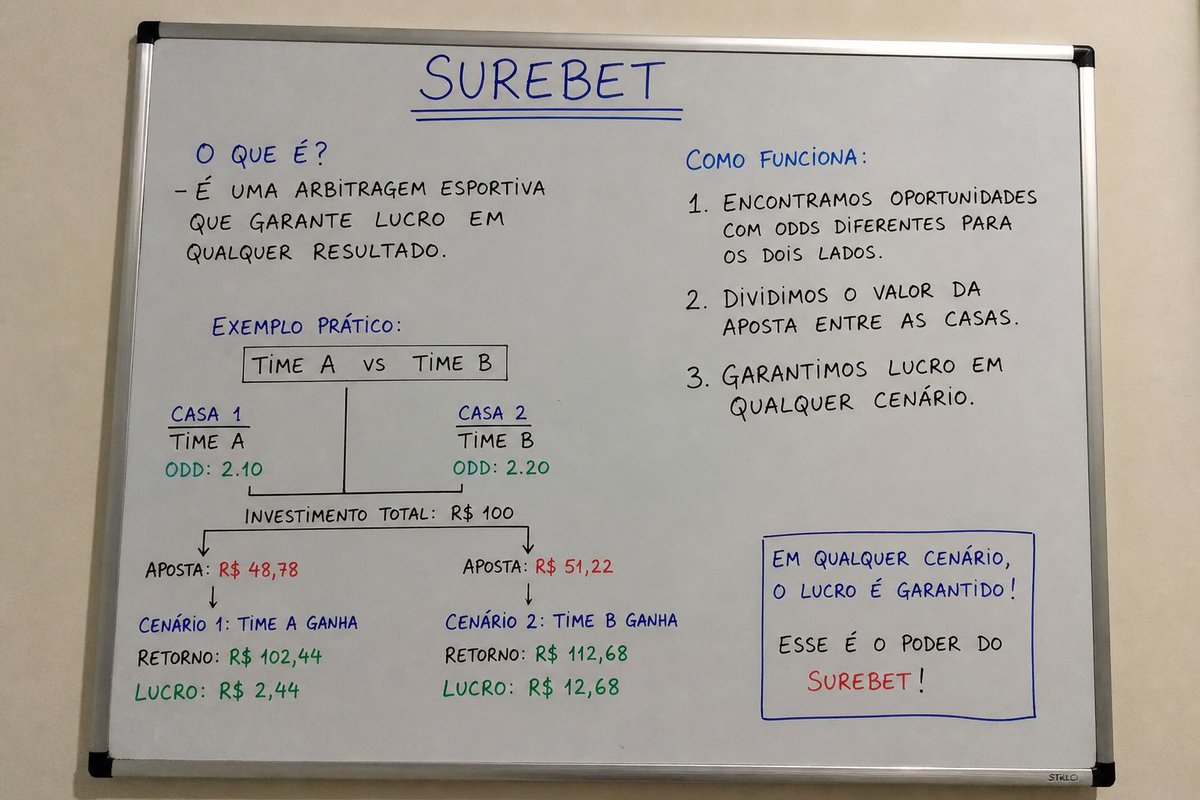 SUREBET
O QUE É?
- É UMA ARBITRAGEM ESPORTIVA
QUE GARANTE LUCRO EM
QUALQUER RESULTADO.
EXEMPLO PRÁTICO:
TIME A VS TIME B
CASA 1
TIME A
ODD: 2.10
CASA 2
TIME B
ODD: 2.20
INVESTIMENTO TOTAL: R$ 100
APOSTA: R$ 48,78
CENÁRIO 1: TIME A GANHA
RETORNO: R$ 102,44
LUCRO: R$ 2,44
APOSTA: R$ 51,22
CENÁRIO 2: TIME B GANHA
RETORNO: R$ 112,68
LUCRO: R$ 12,68
COMO FUNCIONA:
1. ENCONTRAMOS OPORTUNIDADES
COM ODDS DIFERENTES PARA
OS DOIS LADOS.
2. DIVIDIMOS O VALOR DA
APOSTA ENTRE AS CASAS.
3. GARANTIMOS LUCRO EM
QUALQUER CENÁRIO.
EM QUALQUER CENÁRIO,
O LUCRO É GARANTIDO!
ESSE É O PODER DO
SUREBET!